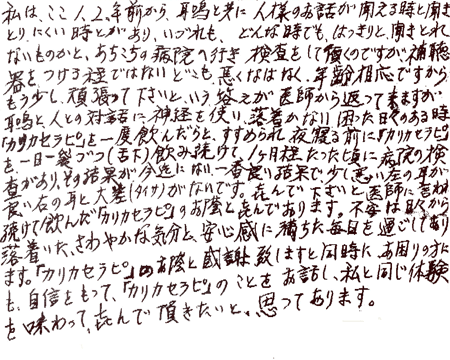 私は、ここ1、2、年前から、耳鳴と共に人様のお話が聞える時と聞き
とりにくい時とがあり、いづれも、どんな時でも、はっきりと聞きとれ
ないものかと、あちこちの病院へ行き検査をして頂くのですが、補聴
器をつける程ではないどこも悪くなはなく、年齢相応ですから
もう少し、頑張って下さいと、いう答えが医師から返って来ますが、
耳鳴と人との対話に神経を使い、落着かない困った日々のある時
「カリカセラピ」を一度飲んだらと、すすめられ、夜寝る前に「カリカセラピ」
を一日一袋づつ(舌下)飲み続けて、1ヶ月程たった頃に病院の検
査があり、その結果が今迄にない一番良い結果で少し悪い左の耳が
良い右の耳と大差(タイサ)がないです。喜んで下さいと医師に言われ
続けて飲んだ「カリカセラピ」のお陰と喜んであります。不安は
落着いた、さわやかな気分と、安心感に満ちた毎日を過ごしてあり
ます。「カリカセラピ」のお陰と感謝致しますと同時に、お困りの方に
も、自信をもって、「カリカセラピ」のことをお話し、私と同じ体験
を味わって、喜んで頂きたいと、思ってあります。